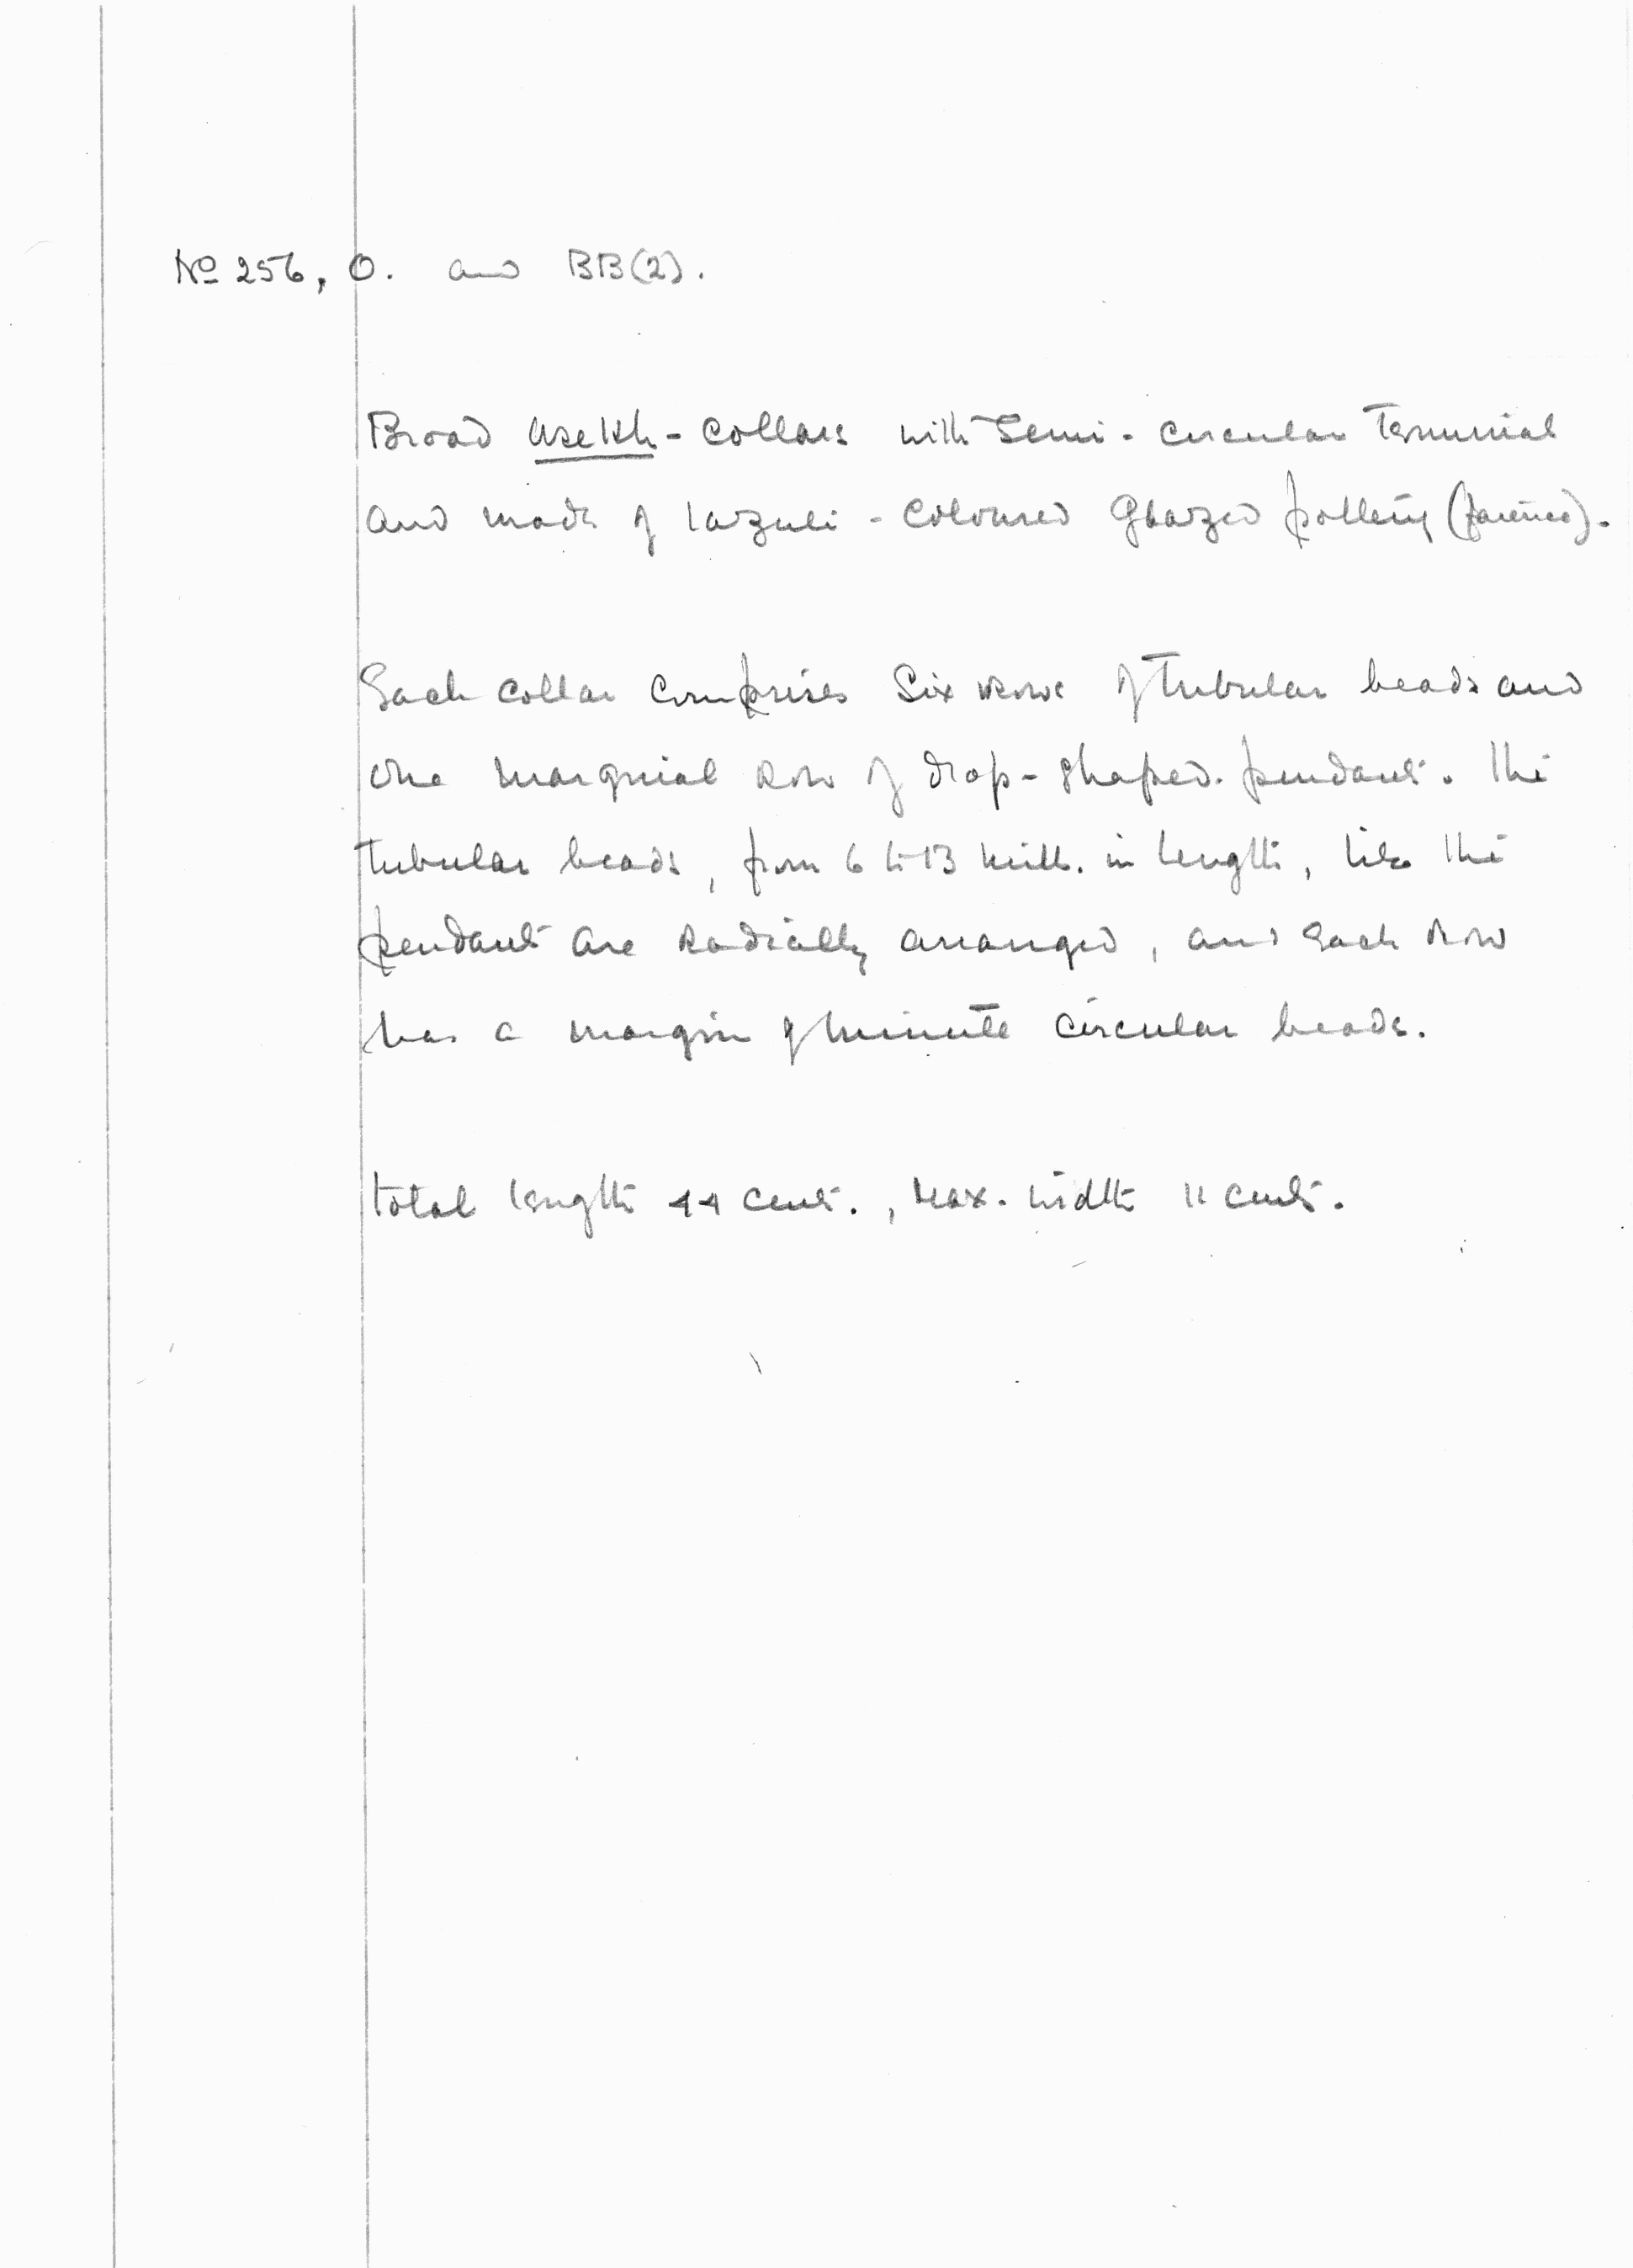 No 256, O. and BB(2).
Broad usekh-collars with semi-circular terminals
and made of lazuli-coloured glazed pottery (faience).
Each collar comprises six rows of tubular beads and
one marginal row of drop-shaped pendants. The
tubular beads, from 6 to 13 mill. in length, like the
pendants are radially arranged, and each row
has a margin of minute circular beads.
Total length 44 cents., Max. width 11 cents.